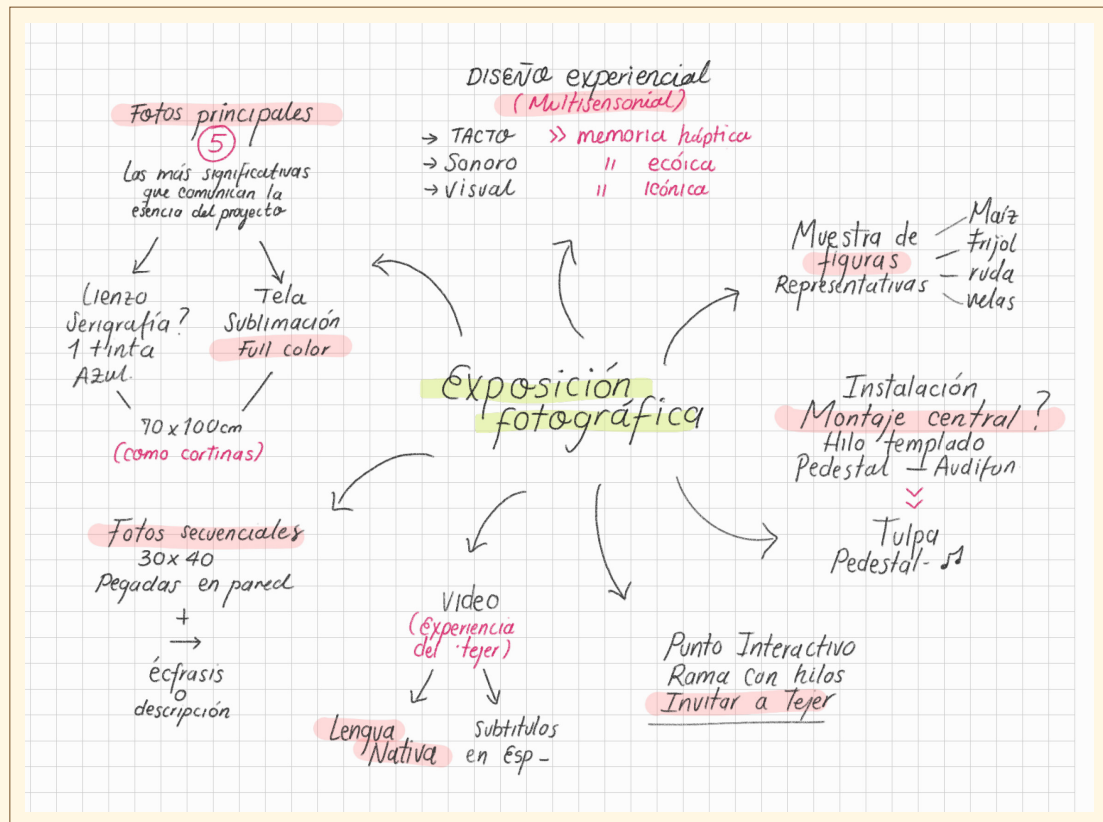 DISEÑO experiencial
(Multisensorial)
→ TACTO >> memoria háptica
→ Sonoro " ecóica
→ Visual " Icónica
Fotos principales
5
Las más significativas
que comunican la
esencia del proyecto
Lienzo
Serigrafía?
1 tinta
Azul.
Tela
Sublimación
Full color
70 x 100cm
(como cortinas)
Muestra de
figuras
Representativas
Maíz
frijol
ruda
velas
Exposición
fotográfica
Instalación
Montaje central?
Hilo templado
Pedestal – Audifon
Tulpa
Pedestal- ♫
Fotos secuenciales
30 x 40
Pegadas en pared
+
→
écfrasis
o
descripción
Video
(Experiencia
del tejer)
Lengua
Nativa
Subtitulos
en Esp -
Punto Interactivo
Rama con hilos
Invitar a Tejer